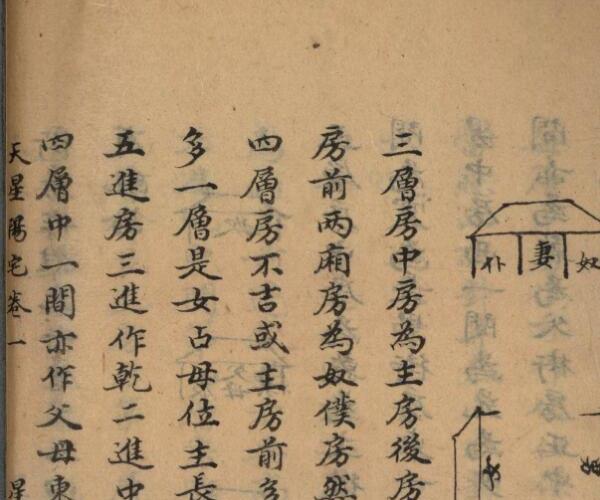 仆 妻 奴
三層房中房為主房後房
房前兩廂房為奴僕房然
四層房不吉或主房前多
多一層是女占母位主長
五進房三進作乾二進中
四層中一間亦作父母東
天星陽宅卷一
星